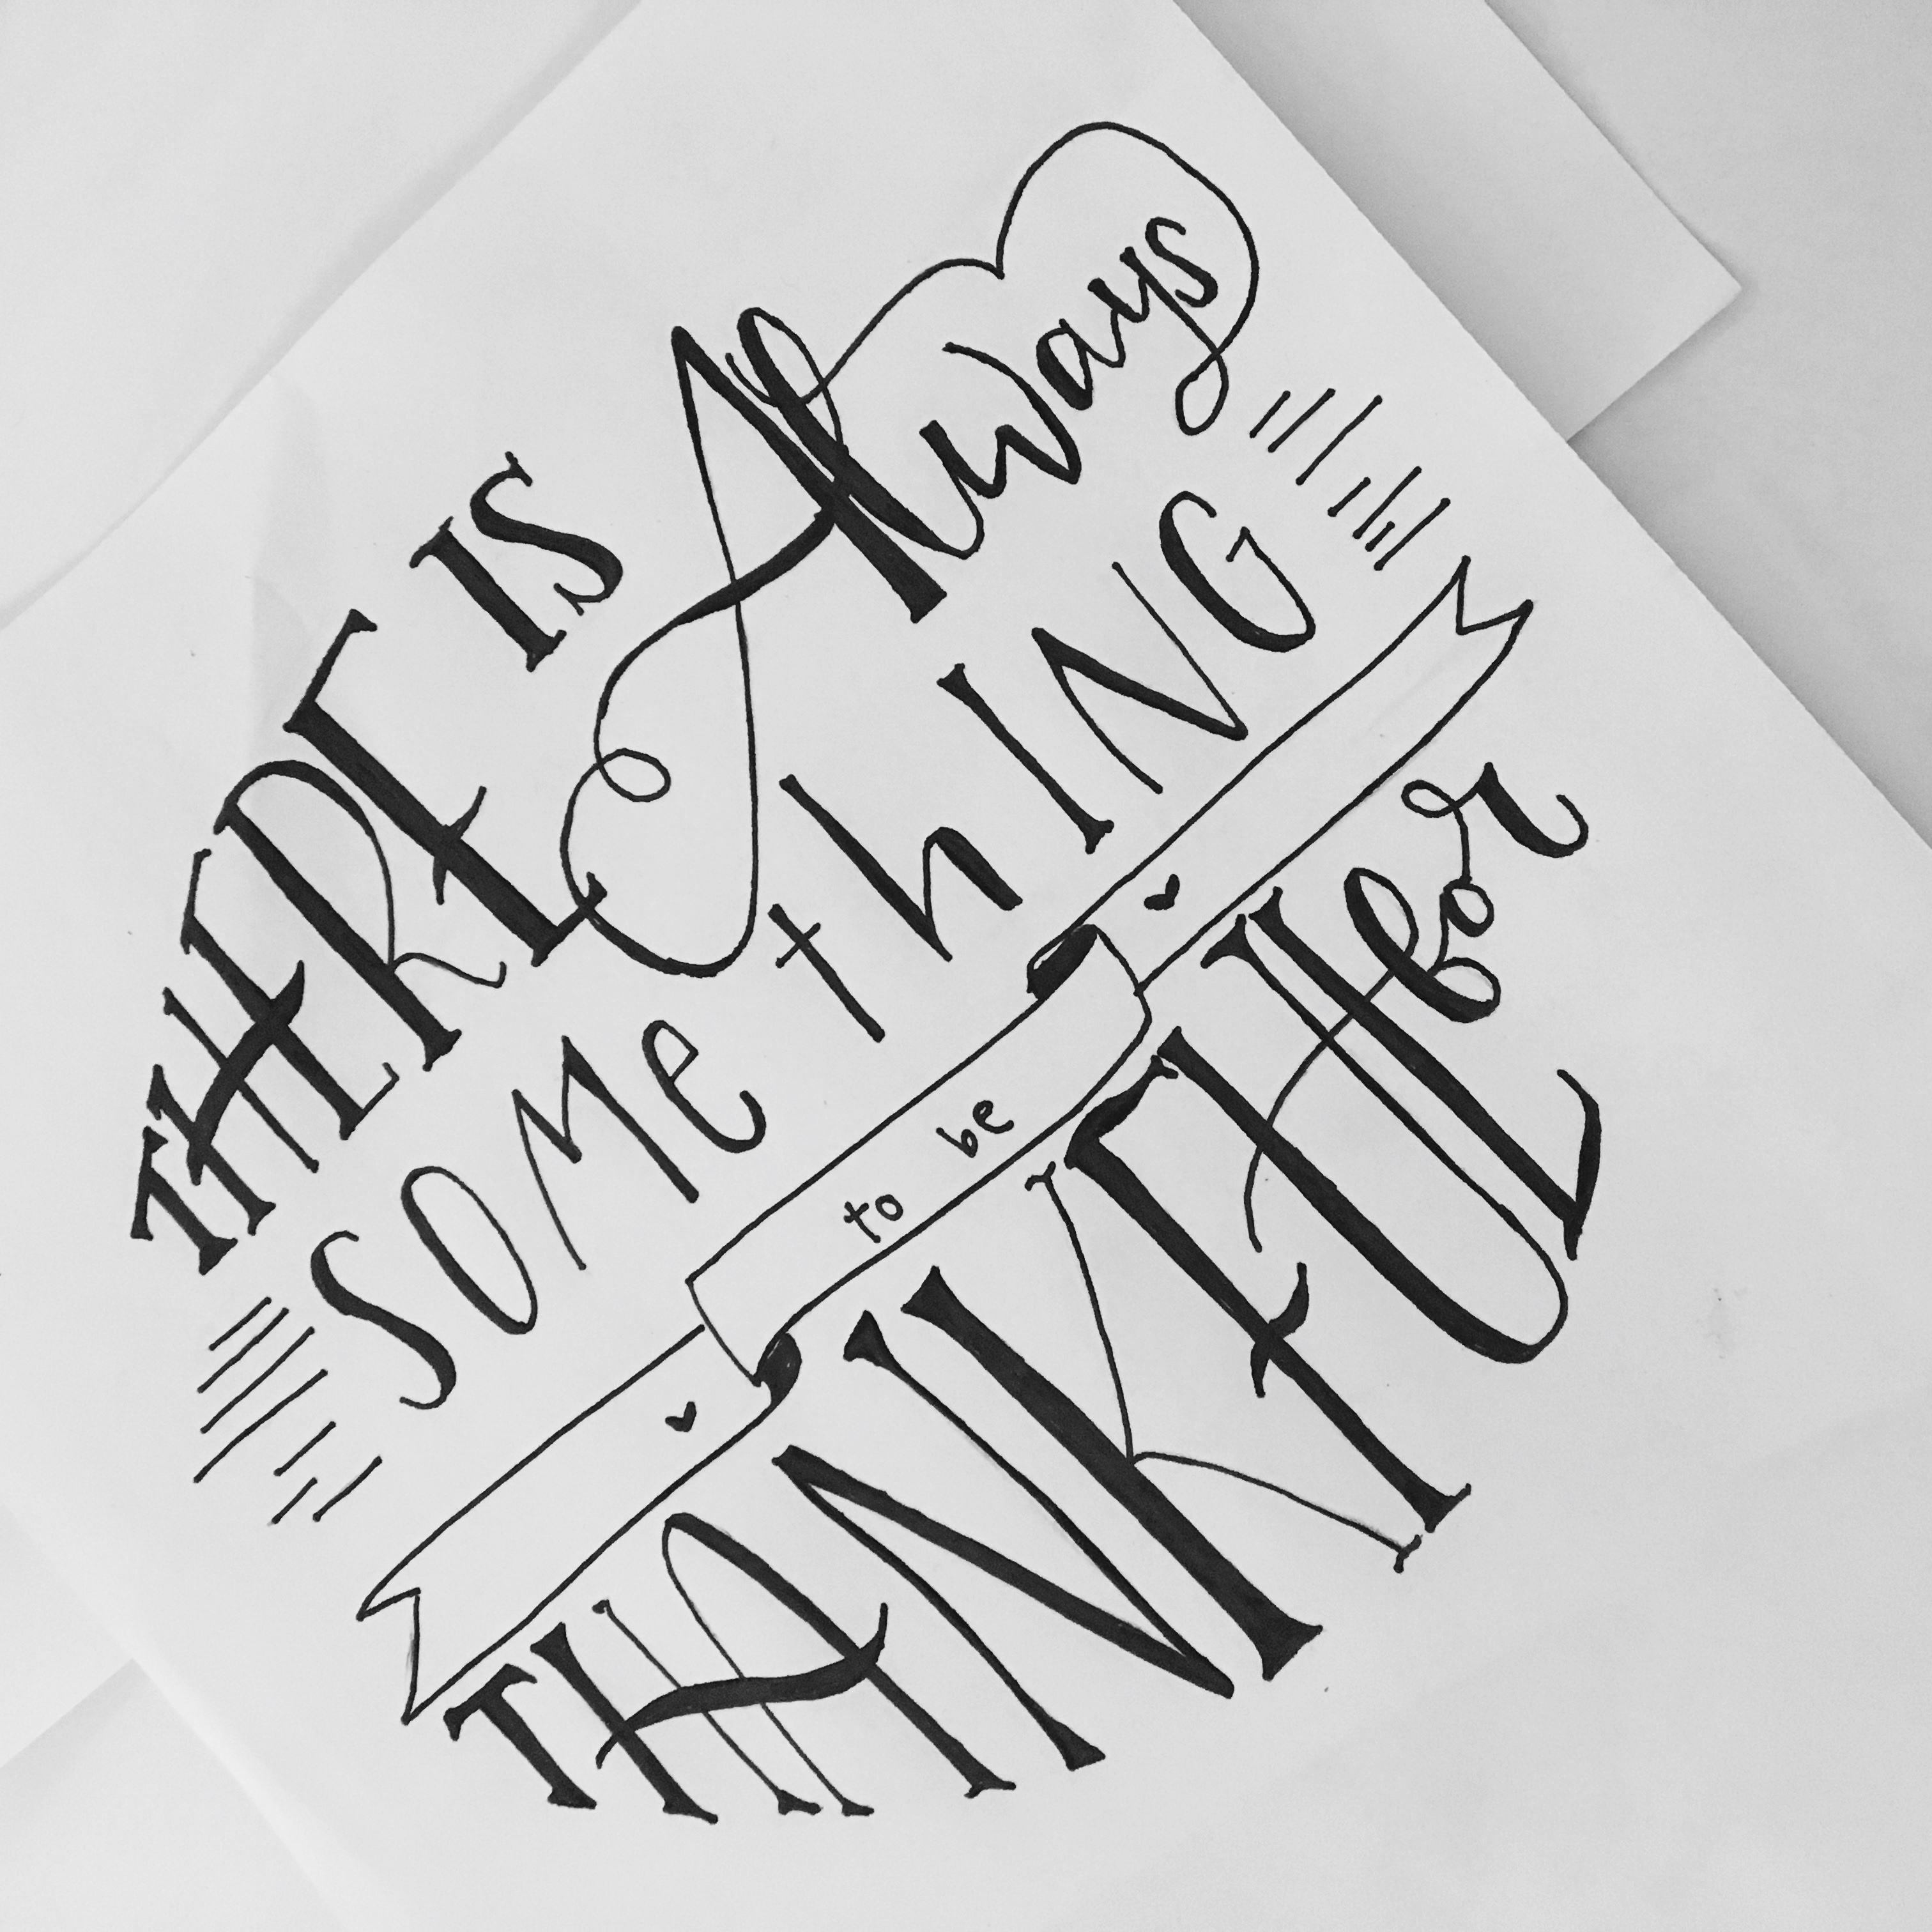 THERE IS Always
SOMethING
to be
THANKFUL for